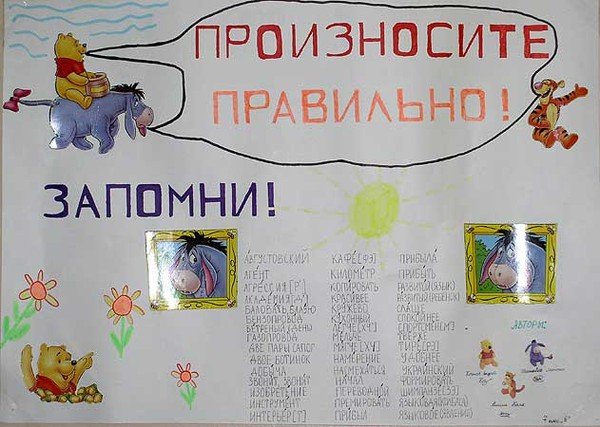 ПРОИЗНОСИТЕ
ПРАВИЛЬНО!
ЗАПОМНИ!
АВГУСТОВСКИЙ
АГЕНТ
АГРЕССИЯ[Р']
АКАДЕМИЯ[Д']
БАЛОВАТЬ, БАЛУЮ
БЕНЗОПРОВОД
ВЕТРЕНЫЙ (ДЕНЬ)
ГАЗОПРОВОД
ДВЕ ПАРЫ САПОГ
ДВОЕ БОТИНОК
ДОБЫЧА
ЗВОНИТ, ЗВОНЯТ
ИЗОБРЕТЕНИЕ
ИНСТРУМЕНТ
ИНТЕРЬЕР[Т]
КАФЕ[ФЭ]
КИЛОМЕТР
КОПИРОВАТЬ
КРАСИВЕЕ
КРУЖЕВО
КУХОННЫЙ
ЛЕГЧЕ[ХЧ]
МЕЛЬЧЕ
МЯГЧЕ[ХЧ]
НАМЕРЕНИЕ
НАСМЕХАТЬСЯ
НАЧАЛ
ПЕРЕВОДНОЙ
ПРЕМИРОВАТЬ
ПРИБЫЛ
ПРИБЫЛА
ПРИБЫТЬ
РАЗВИТОЙ(ЯЗЫК)
РАЗВИТЫЙ(РЕБЕНОК)
СЛАЩЕ
СПОКОЙНЕЕ
СПОРТСМЕН[М]
ТВЕРЖЕ
ТИРЕ[РЭ]
УДОБНЕЕ
УКРАИНСКИЙ
ФОРМИРОВАТЬ
ШИМПАНЗЕ[ЗЭ]
ЯЗЫКОВАЯ(КОЛБАСА)
ЯЗЫКОВОЕ(ЯВЛЕНИЕ)
АВТОРЫ: